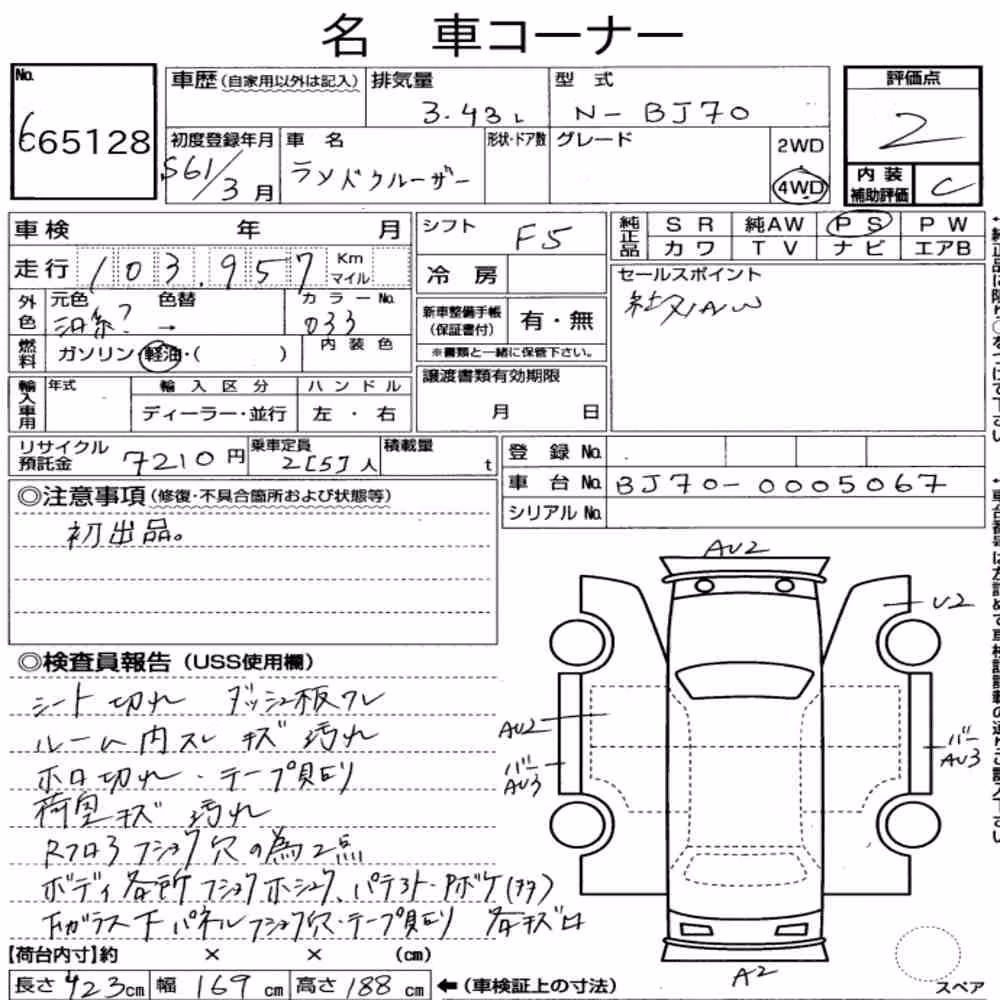 名 車コーナー
No.
665128
車歴(自家用以外は記入)
排気量
3.43L
型式
N-BJ70
初度登録年月
S61/3月
車名
ランドクルーザー
形状・ドア数
グレード
2WD
4WD
評価点
2
内装
補助評価
C
車検 年 月
走行 103,957 Km
マイル
シフト
F5
冷房
純正品
SR 純AW PS PW
カワ TV ナビ エアB
セールスポイント
社外AW
外色
元色 色替 カラーNo.
油系? → 033
燃料
ガソリン・軽油・( )
内装色
新車整備手帳
(保証書付)
有・無
※書類と一緒に保管下さい。
輸入車用
年式
輸入区分
ディーラー・並行
ハンドル
左・右
譲渡書類有効期限
月 日
リサイクル
預託金
7210円
乗車定員
2[5]人
積載量
t
登録No.
車台No. BJ70-0005067
シリアルNo.
◎注意事項(修復・不具合箇所および状態等)
初出品。
◎検査員報告(USS使用欄)
シート切れ ダッシュ板ワレ
ルーム内スレ キズ 汚れ
ホロ切れ・テープ貼り
荷室キズ 汚れ
Rフロアフショク穴の為2点
ボディ各所フショクホシュウ、パテ
下パネルフショク穴・テープ貼り 各キズ
AU2
U2
AU2
バー
AU3
バー
AU3
A2
スペア
【荷台内寸】約 × × (cm)
長さ423cm 幅169cm 高さ188cm
←(車検証上の寸法)